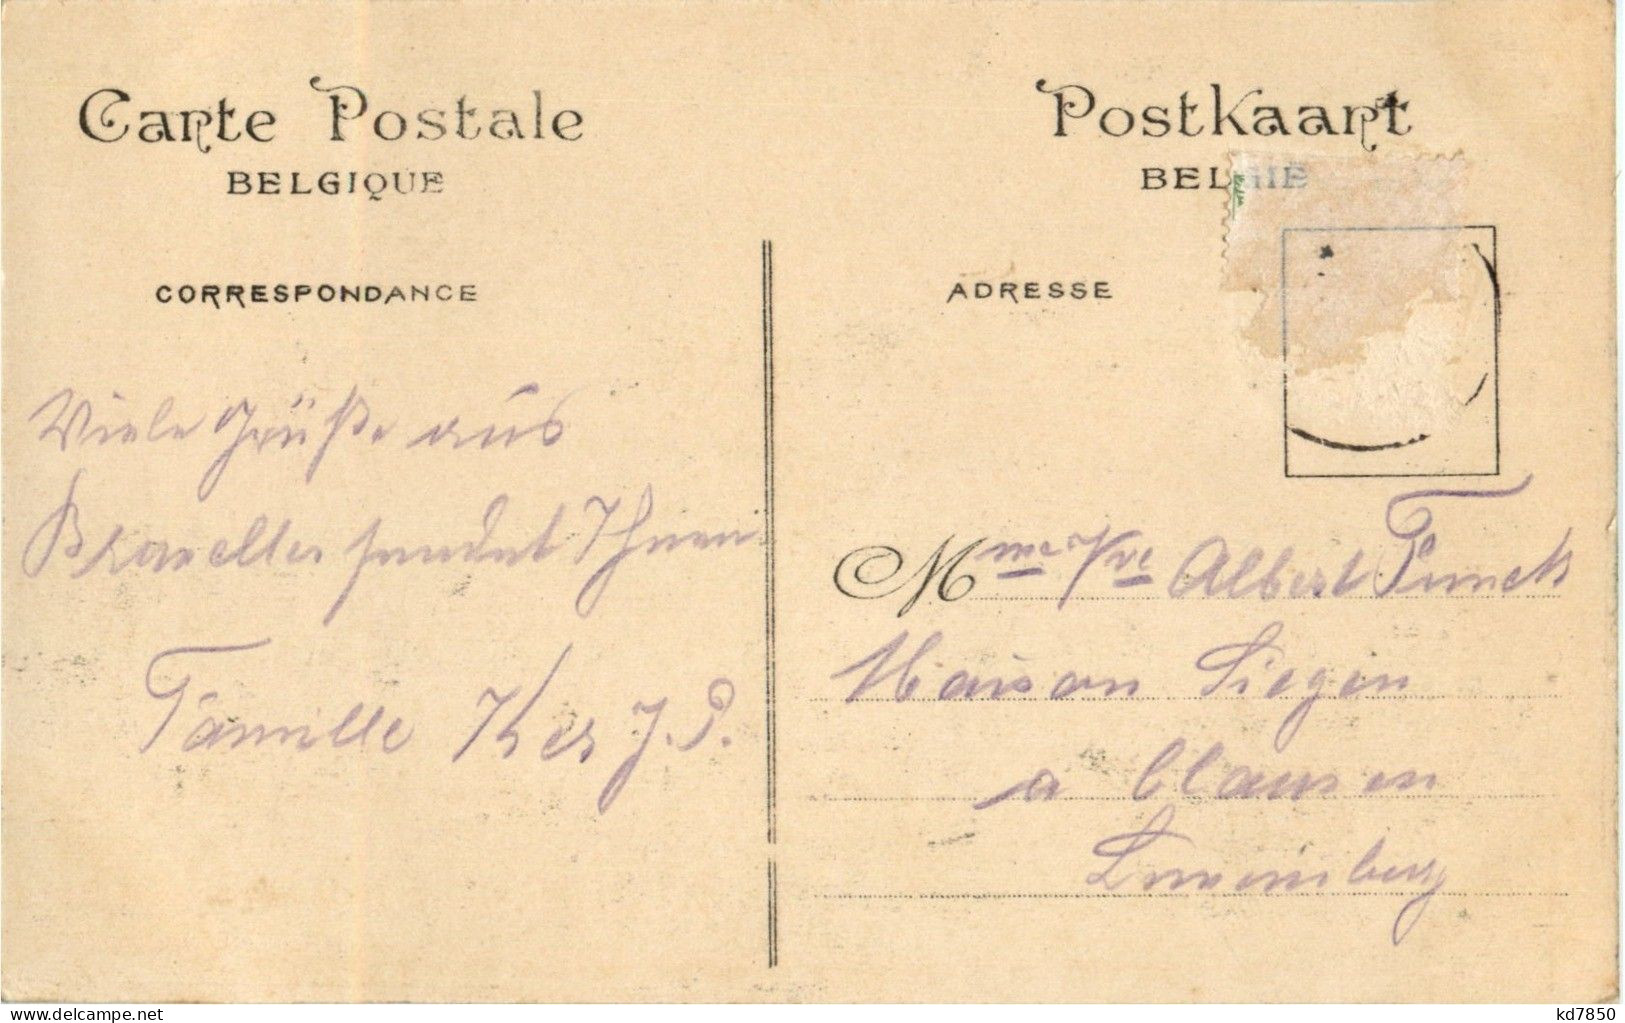 Carte Postale
BELGIQUE
CORRESPONDANCE
Viele Grüße aus
Bruxelles sendet Ihnen
Famille Kes J. P.
Postkaart
BELGIE
ADRESSE
Mme Vve Albert Funck
Maison Siegen
a Clausen
Luxemburg
delcampe.net
kd7850